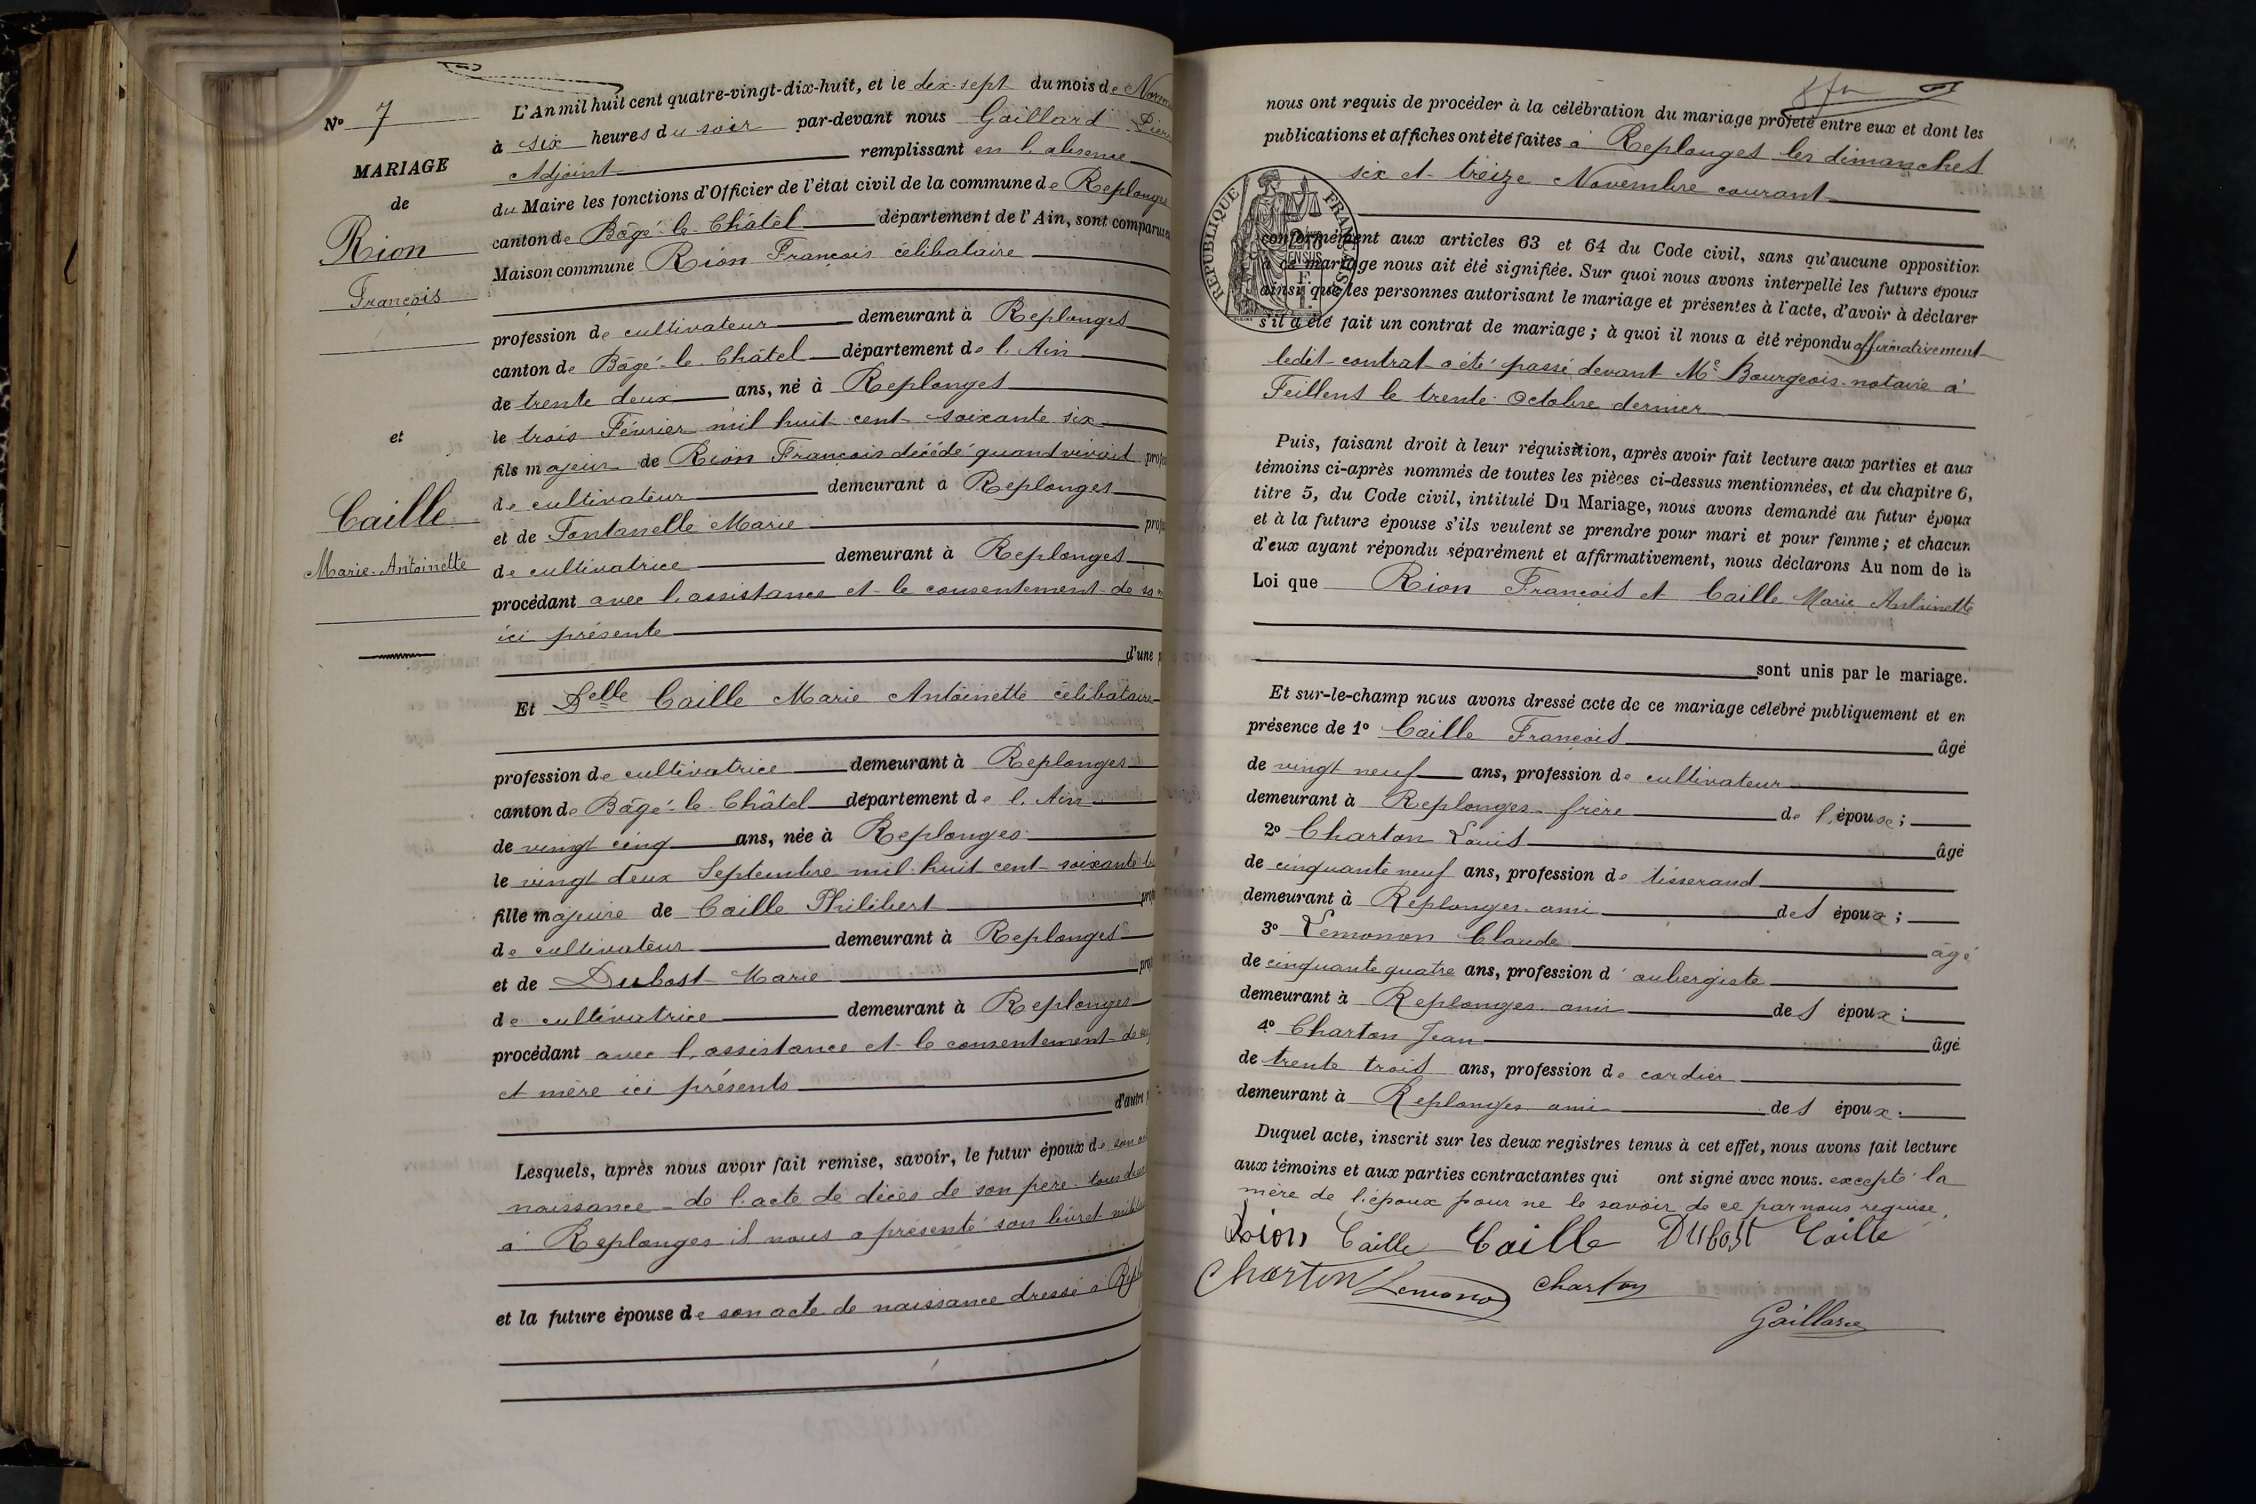 N° 7
MARIAGE
de
Rion
François
et
Caille
Marie-Antoinette
L'An mil huit cent quatre-vingt-dix-huit, et le dix-sept du mois de
à six heures du soir par-devant nous Gaillard
Adjoint remplissant en l'absence
du Maire les fonctions d'Officier de l'état civil de la commune de Replonge
canton de Bâgé-le-Châtel département de l'Ain, sont comparu
Maison commune Rion François célibataire
profession de cultivateur demeurant à Replonges
canton de Bâgé-le-Châtel département de l'Ain
de trente deux ans, né à Replonges
le trois Février mil huit cent soixante six
fils majeur de Rion François décédé quand vivait
de cultivateur demeurant à Replonges
et de Fontanelle Marie
de cultivatrice demeurant à Replonges
procédant avec l'assistance et le consentement de sa
ici présente
d'une
Et Delle Caille Marie Antoinette célibataire
profession de cultivatrice demeurant à Replonges
canton de Bâgé-le-Châtel département de l'Ain
de vingt cinq ans, née à Replonges
le vingt deux Septembre mil huit cent soixante
fille majeure de Caille Philibert
de cultivateur demeurant à Replonges
et de Dubost Marie
de cultivatrice demeurant à Replonges
procédant avec l'assistance et le consentement de
et mère ici présents
d'autre
Lesquels, après nous avoir fait remise, savoir, le futur époux de son
naissance - de l'acte de décès de son père tous deux
à Replonges il nous a présenté son livret
et la future épouse de son acte de naissance dressé à
nous ont requis de procéder à la célébration du mariage projeté entre eux et dont les
publications et affiches ont été faites à Replonges les dimanches
six et treize Novembre courant
RÉPUBLIQUE FRANÇAISE
conformément aux articles 63 et 64 du Code civil, sans qu'aucune opposition
à ce mariage nous ait été signifiée. Sur quoi nous avons interpellé les futurs époux
ainsi que les personnes autorisant le mariage et présentes à l'acte, d'avoir à déclarer
s'il a été fait un contrat de mariage ; à quoi il nous a été répondu affirmativement
ledit contrat a été passé devant Me Bourgeois notaire à
Feillens le trente Octobre dernier
Puis, faisant droit à leur réquisition, après avoir fait lecture aux parties et aux
témoins ci-après nommés de toutes les pièces ci-dessus mentionnées, et du chapitre 6,
titre 5, du Code civil, intitulé Du Mariage, nous avons demandé au futur époux
et à la future épouse s'ils veulent se prendre pour mari et pour femme ; et chacun
d'eux ayant répondu séparément et affirmativement, nous déclarons Au nom de la
Loi que Rion François et Caille Marie Antoinette
sont unis par le mariage.
Et sur-le-champ nous avons dressé acte de ce mariage célébré publiquement et en
présence de 1° Caille François âgé
de vingt neuf ans, profession de cultivateur
demeurant à Replonges frère de l'épouse ;
2° Charton Louis âgé
de cinquante neuf ans, profession de tisserand
demeurant à Replonges ami des époux ;
3° Lemonon Claude âgé
de cinquante quatre ans, profession d'aubergiste
demeurant à Replonges ami des époux ;
4° Charton Jean âgé
de trente trois ans, profession de cordier
demeurant à Replonges ami des époux.
Duquel acte, inscrit sur les deux registres tenus à cet effet, nous avons fait lecture
aux témoins et aux parties contractantes qui ont signé avec nous. excepté la
mère de l'époux pour ne le savoir de ce par nous requise.
Rion Caille Caille Dubost Caille
Charton Lemonon Charton
Gaillard